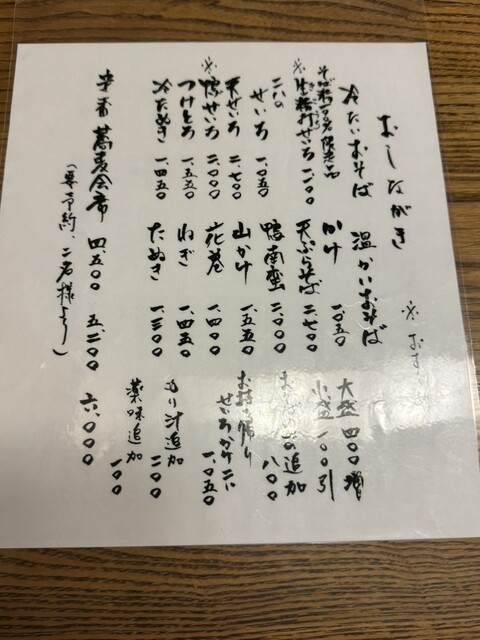 おしながき
※おすすめ
冷たいおそば
そば粉 限定品
※生粉打せいろ 一、二〇〇
二八の
せいろ 一、〇五〇
天せいろ 二、七〇〇
※鴨せいろ 二、〇〇〇
つけとろ 一、五五〇
冷たぬき 一、四五〇
温かいおそば
かけ 一、〇五〇
天ぷらそば 二、七〇〇
鴨南蛮 二、〇〇〇
山かけ 一、五五〇
花巻 一、四〇〇
ねぎ 一、四五〇
たぬき 一、三〇〇
大盛 四〇〇増
小盛 一〇〇引
の追加 八〇〇
お持ち帰り
せいろかけ共に 一、〇五〇
もり汁追加 二〇〇
薬味追加 一〇〇
蕎麦会席 四、五〇〇 五、二〇〇 六、〇〇〇
(要予約、二名様より)